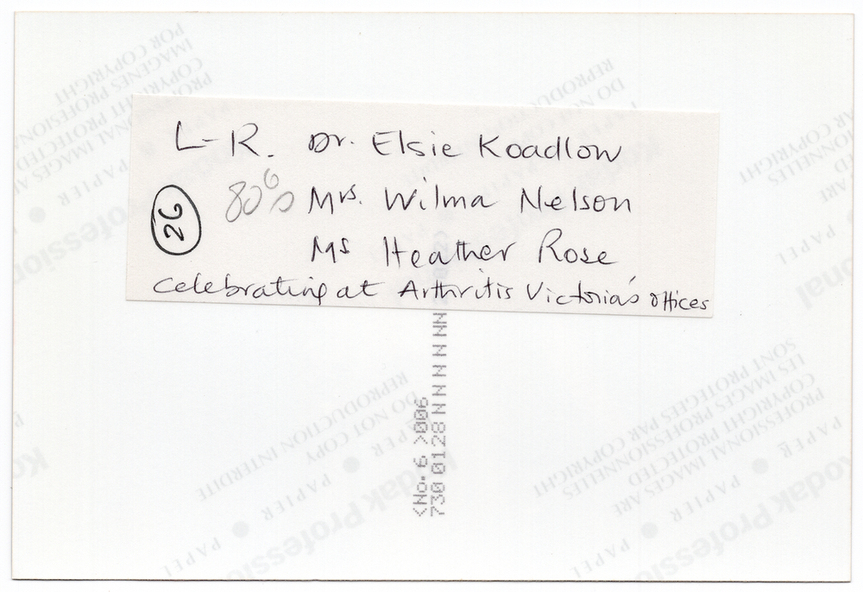 L-R. Dr. Elsie Koadlow
80's Mrs. Wilma Nelson
26
Ms Heather Rose
Celebrating at Arthritis Victoria's offices
<No. 6 >006
730 0128 N N N N N NN
PROFESSIONAL IMAGES ARE
COPYRIGHT PROTECTED
LES IMAGES PROFESSIONNELLES
SONT PROTEGEES PAR COPYRIGHT
DO NOT COPY
REPRODUCTION INTERDITE
Kodak Professional
PAPER ● PAPIER ● PAPEL